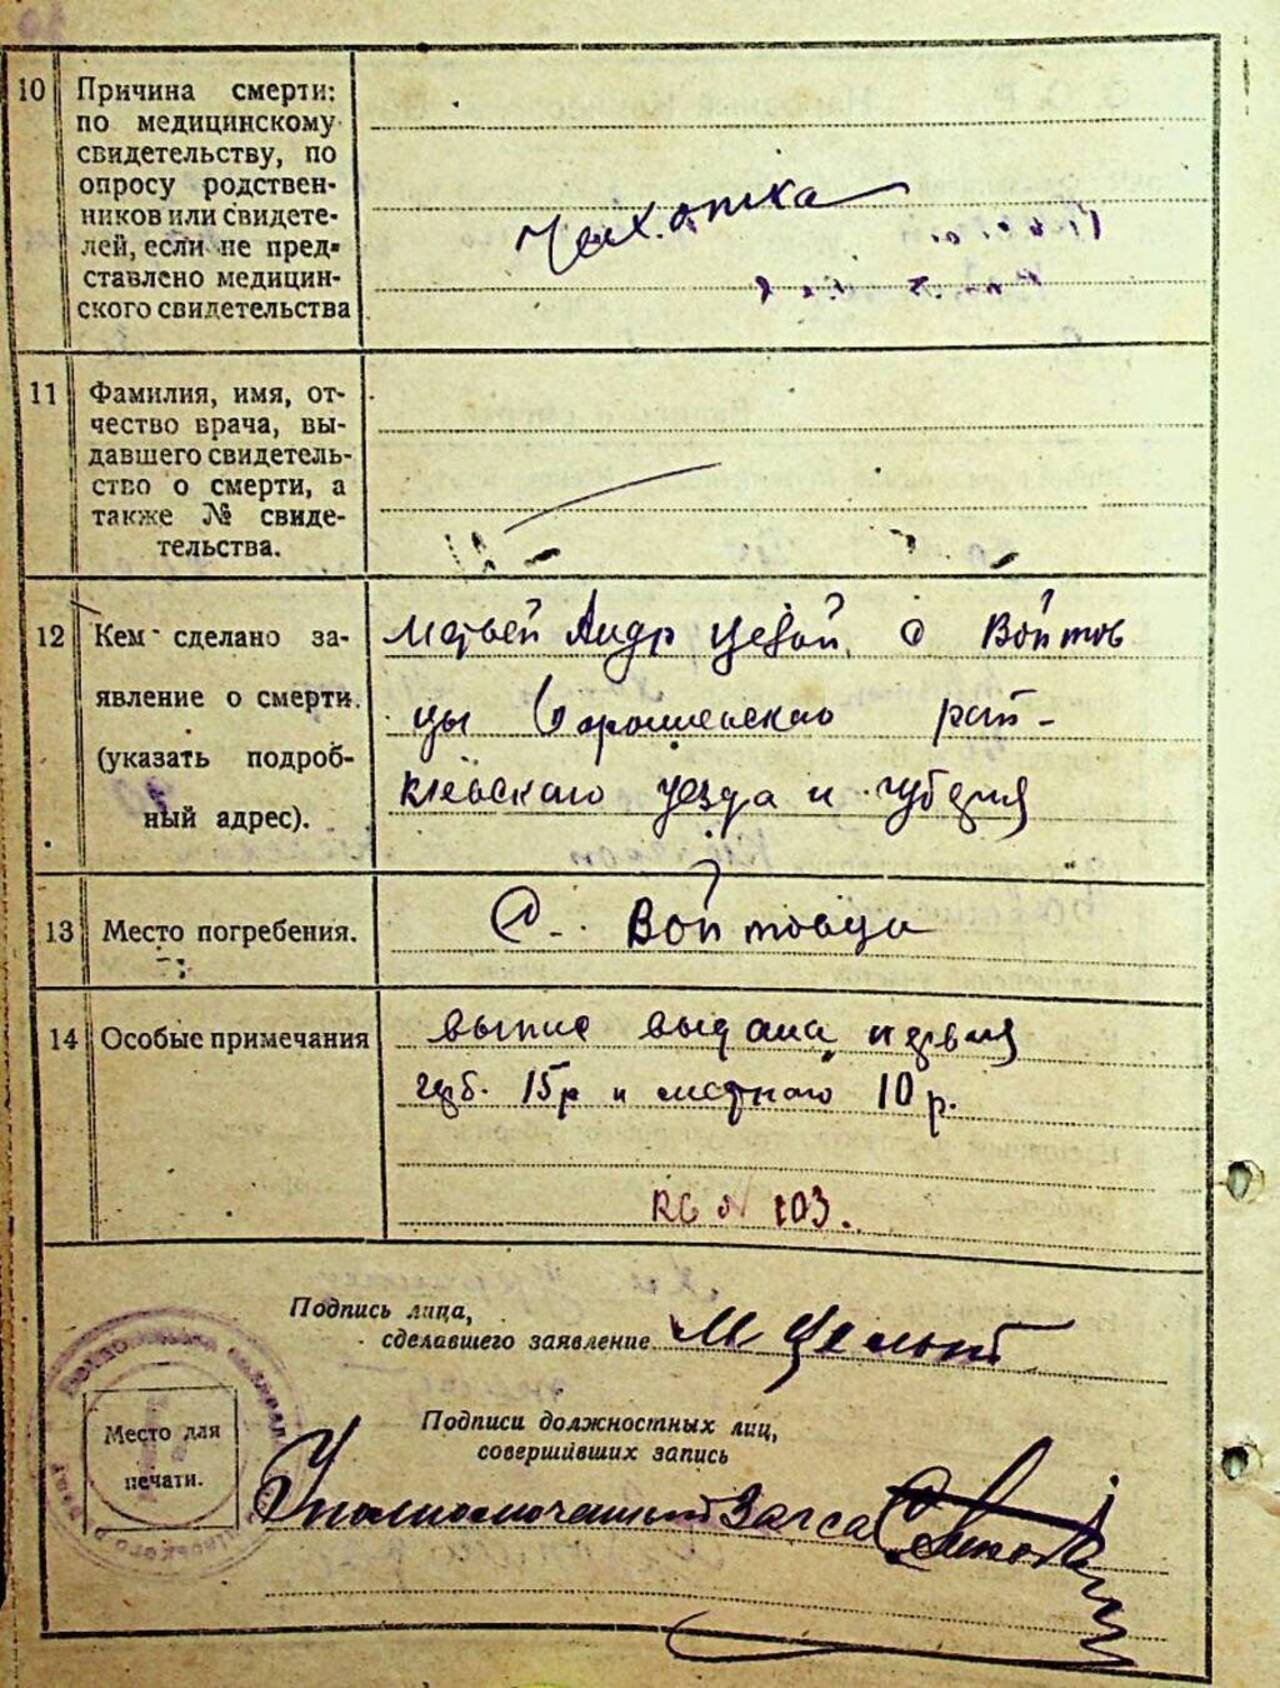 10 Причина смерти:
по медицинскому
свидетельству, по
опросу родствен-
ников или свидете-
лей, если не пред-
ставлено медицин-
ского свидетельства
Чахотка
11 Фамилия, имя, от-
чество врача, вы-
давшего свидетель-
ство о смерти, а
также № свиде-
тельства.
12 Кем сделано за-
явление о смерти.
(указать подроб-
ный адрес).
С Войтов
цы
киевского уезда и губерния
13 Место погребения.
С. Войтовцы
14 Особые примечания
выпис выдана первая
герб. 15р и местного 10р.
№ 103.
Подпись лица,
сделавшего заявление
М
Подписи должностных лиц,
совершивших запись
Место для
печати.
Уполномоченный Загса